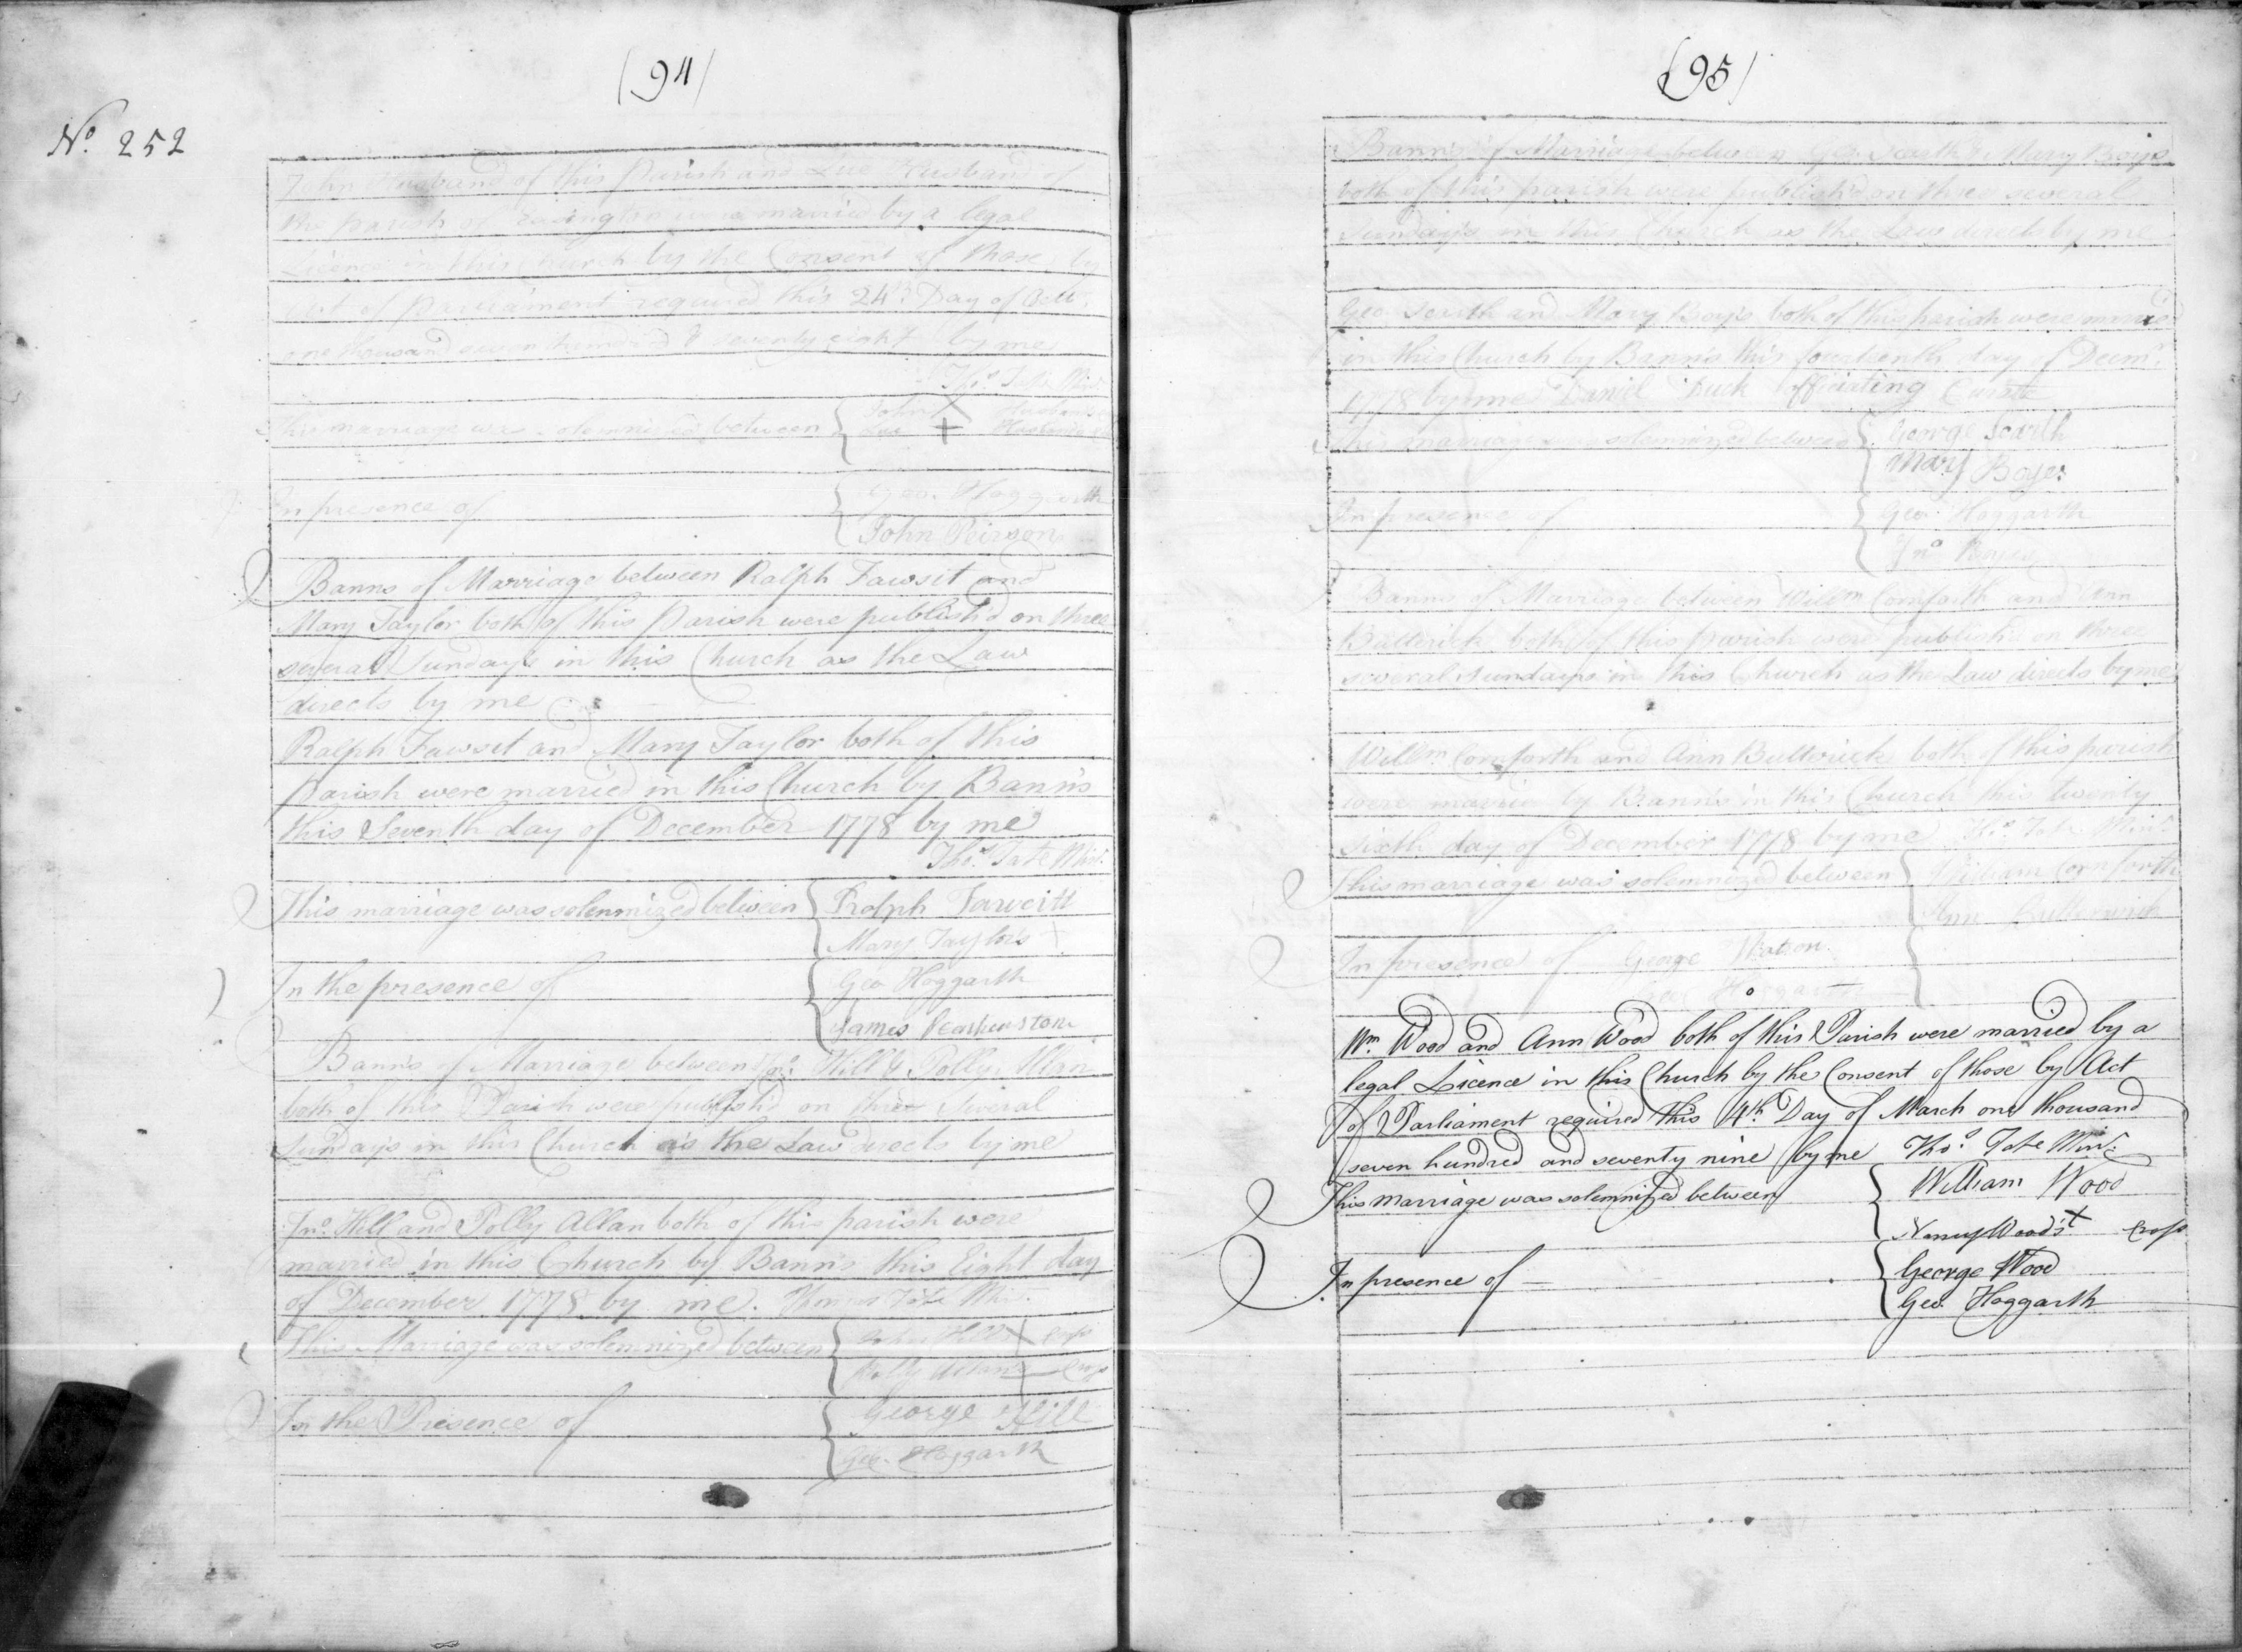 (94)
No. 252
John Husband of this Parish and Husband of
the parish of Easington were married by a legal
Licence in this Church by the Consent of those by
Act of Parliament required this 24th Day of
one thousand seven hundred & seventy eight by me
Thos. Tate Minr.
This marriage was solemnized between John X Husband
+ Husband
In presence of Geo. Hoggarth
John Peirson
Banns of Marriage between Ralph Fawsit and
Mary Taylor both of this Parish were publish'd on three
several Sunday's in this Church as the Law
directs by me
Ralph Fawsit and Mary Taylor both of this
Parish were married in this Church by Bann's
this Seventh day of December 1778 by me
Thos. Tate Minr.
This marriage was solemnized between Ralph Fawcitt
Mary Taylor's X
In the presence of Geo Hoggarth
James
Bann's of Marriage between Jno. Hill & Polly Allan
both of this Parish were publish'd on three several
Sunday's in this Church as the Law directs by me
Jno. Hill and Polly Allan both of this parish were
married in this Church by Bann's this Eight day
of December 1778 by me. Thomas Tate Minr.
This Marriage was solemnized between John Hill X
Polly Allan's +
In the Presence of George Hill
Geo. Hoggarth
(95)
Bann's of Marriage between Geo. Scarth & Mary Boyes
both of this parish were publish'd on three several
Sunday's in this Church as the Law directs by me
Geo. Scarth and Mary Boyes both of this parish were married
in this Church by Bann's this fourteenth day of Decmr.
1778 by me Daniel Duck officiating Curate
This marriage was solemnized between George Scarth
Mary Boyes
In presence of Geo. Hoggarth
Jno Boyes
Banns of Marriage between Willm Cornforth and Ann
Butterick both of this parish were publish'd on three
several Sundays in this Church as the Law directs by me
Willm. Cornforth and Ann Butterick both of this parish
were married by Bann's in this Church this twenty
sixth day of December 1778 by me Thos. Tate Minr.
This marriage was solemnized between William Cornforth
Ann Butterwick
In presence of George Watson
Geo Hoggarth
Wm. Wood and Ann Wood both of this Parish were married by a
legal Licence in this Church by the Consent of those by Act
of Parliament required this 4th. Day of March one thousand
seven hundred and seventy nine by me Thos. Tate Minr.
This marriage was solemnized between William Wood
Nancy Wood's X Cross
In presence of — George Wood
Geo. Hoggarth